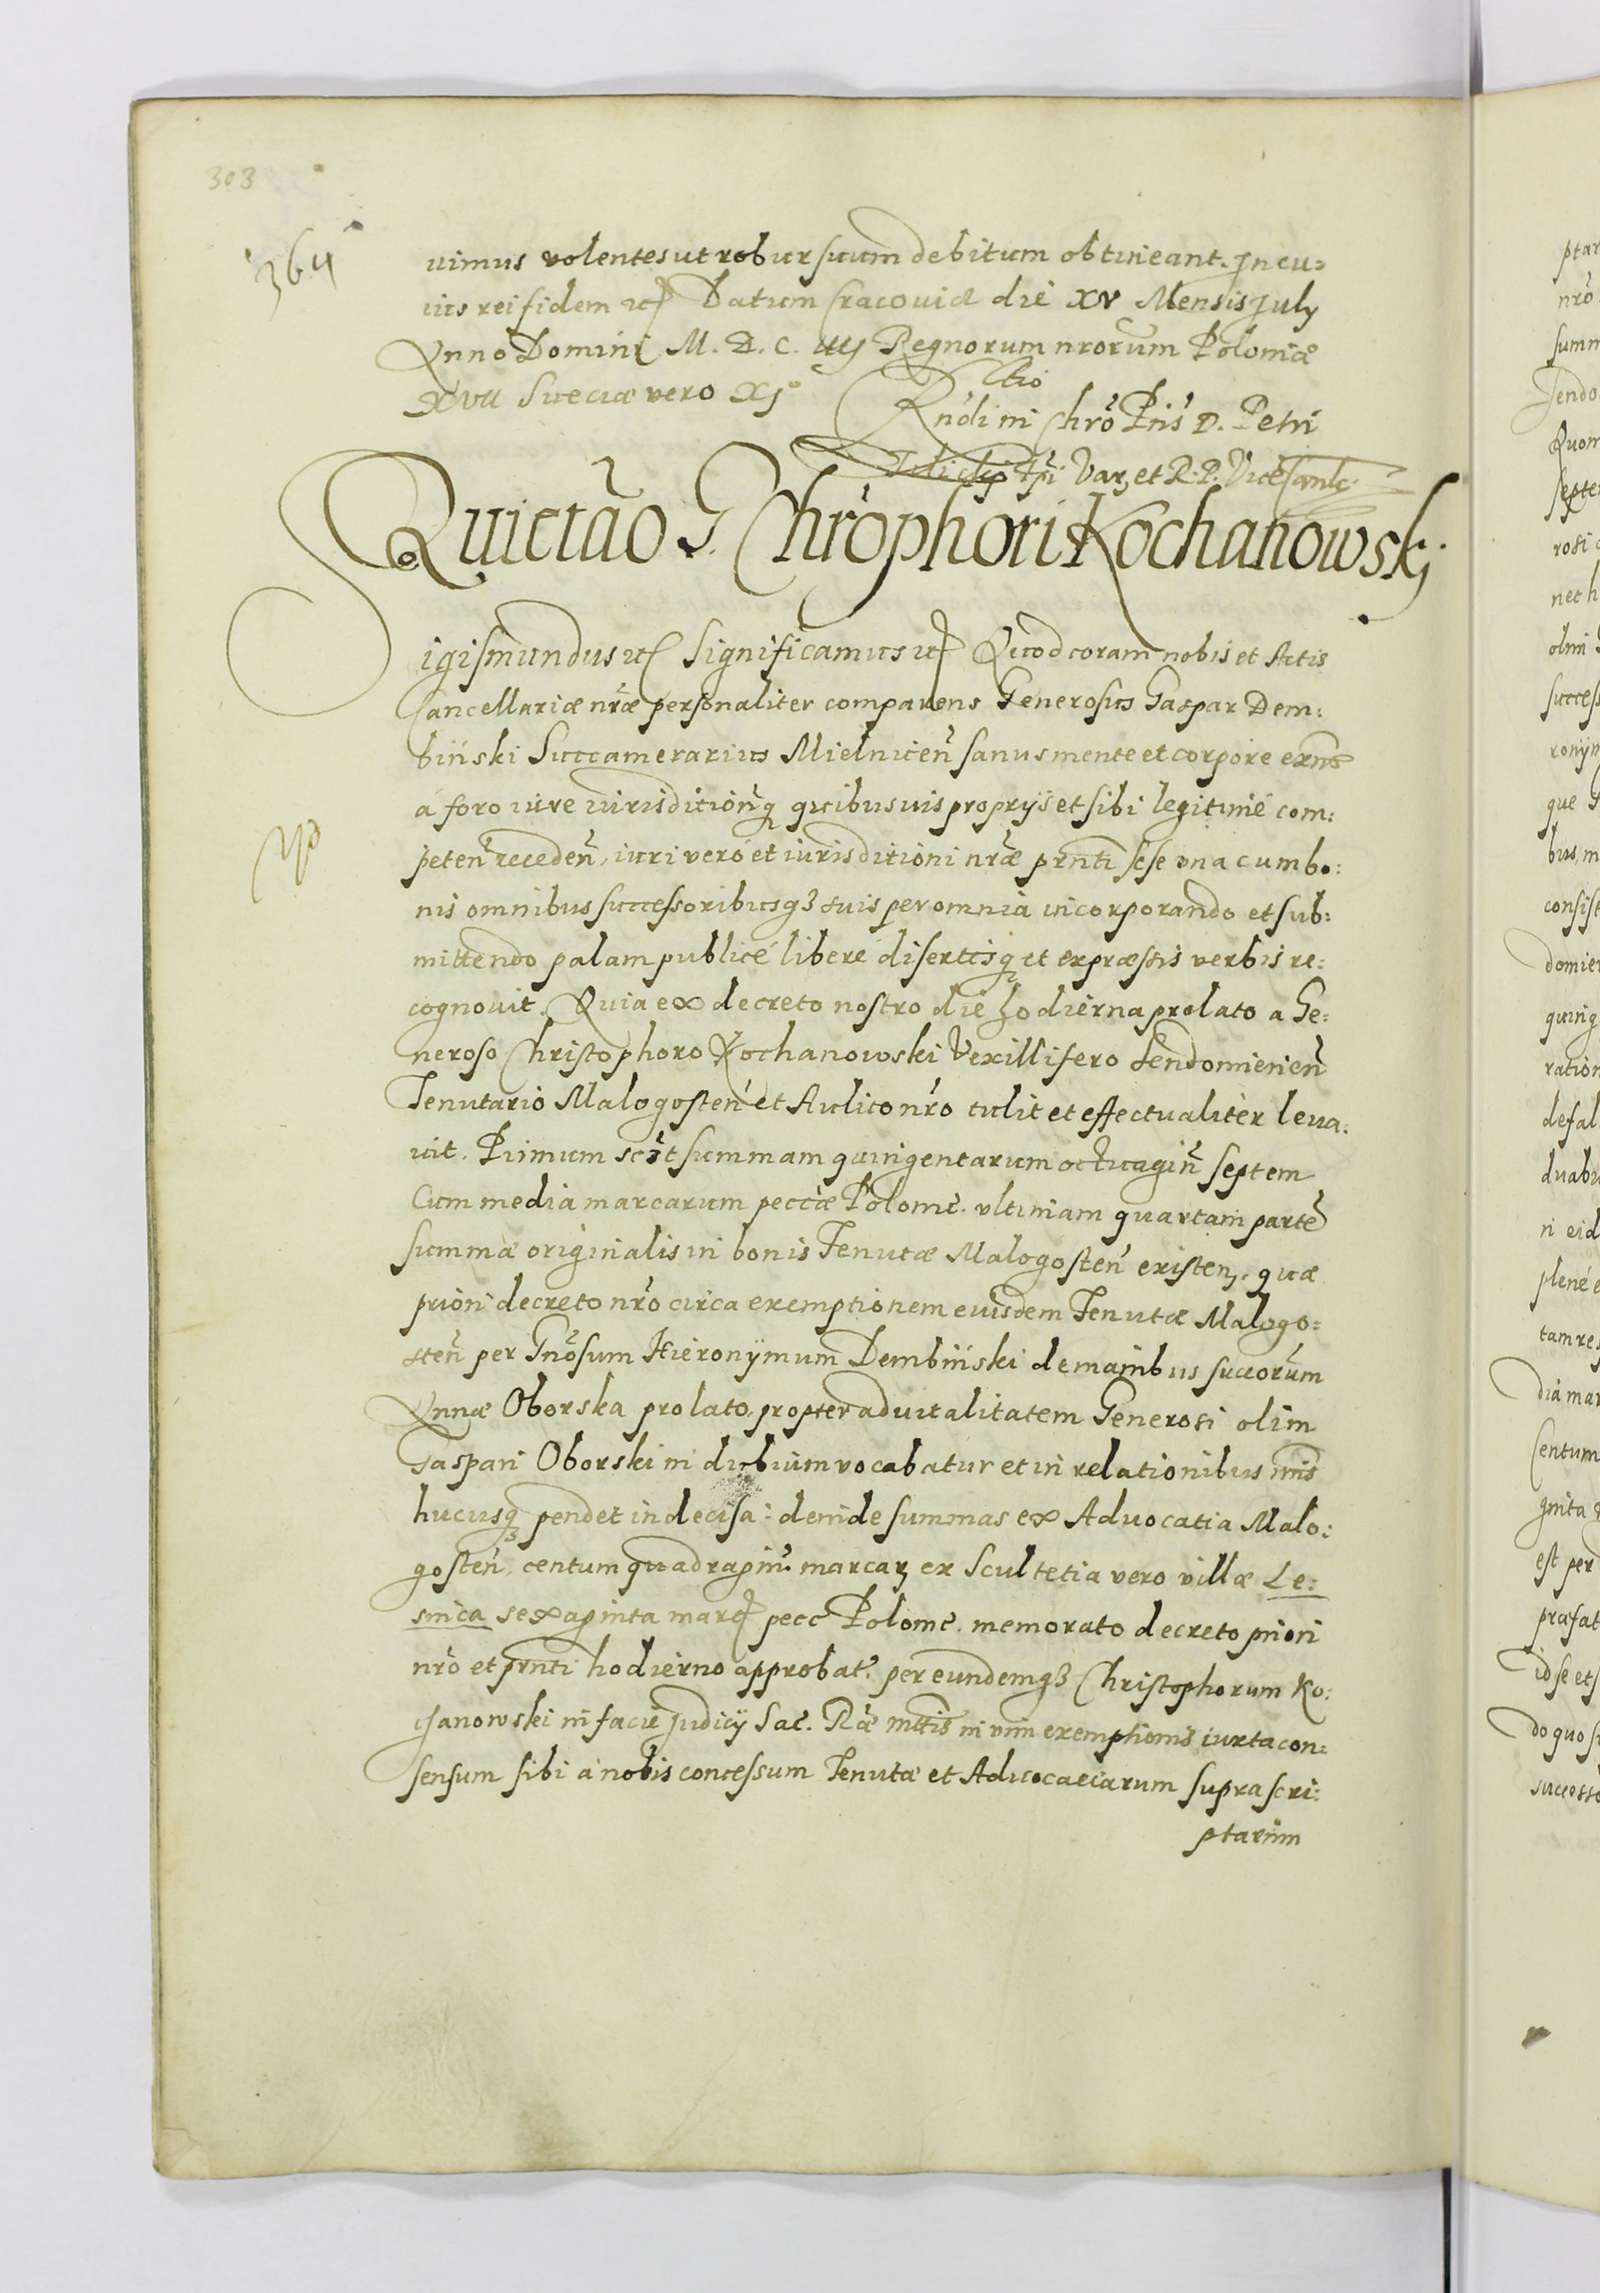 303
364
uimus volentes ut robur suum debitum obtineant. In cu=
ius rei fidem etc Datum Cracouiæ die XV Mensis July
Anno Domini M. D. C. iiij Regnorum nrorum Poloniæ
XVII Sueciæ vero XI°
Rtio
Rndi in Chro Pris D. Petri
Tilicki Epi Var. et R. P. Vice Canlc.
Quietão G. Chrophori Kochanowskj.
Sigismundus etc Significamus etc Quod coram nobis et Actis
Cancellariæ nræ personaliter comparens Generosus Gaspar Dem=
biński Succamerarius Mielnicen sanus mente et corpore exns
á foro iure iurisditionq quibusuis proprijs et sibi legitimé com=
peten receden, iuri veró et iurisditioni nræ prnti sese vna cum bo=
nis omnibus successoribusq3 suis per omnia incorporando et sub=
mittendo palam publicé liberé disertisq et expræssis verbis re=
cognouit. Quia ex decreto nostro die hodierna prolato a Ge=
neroso Christophoro Kochanowski Vexillifero Sendomirien
Tenutario Malogosten et Aulico nro tulit et effectualiter leua=
uit. Primum sc3t summam quingentarum octuagin septem
Cum media marcarum peccæ Polonic. vltimam quartam parte
summæ originalis in bonis Tenutæ Malogosten existen. quæ
priori decreto nro circa exemptionem eiusdem Tenutæ Malogo=
sten per Gnosum Hieronymum Dembiński de manibus succorum
Annæ Oborska prolato, propter aduitalitatem Generosi olim
Gaspari Oborski in dubium vocabatur et in relationibus nris
hucusq3 pendet indecisa: deinde summas ex Aduocatia Malo=
gosten, centum quadragin marcar ex Scultetia vero villæ Le=
snica sexaginta marc pecc Polonic. memorato decreto priori
nro et prnti hodierno approbat. per eundemq3 Christophorum Ko=
chanowski in facie Judicij Sac. Ræ Mttis in vim exemptionis iuxta con=
sensum sibi á nobis concessum Tenutæ et Aduocatiarum suprascri=
ptarum